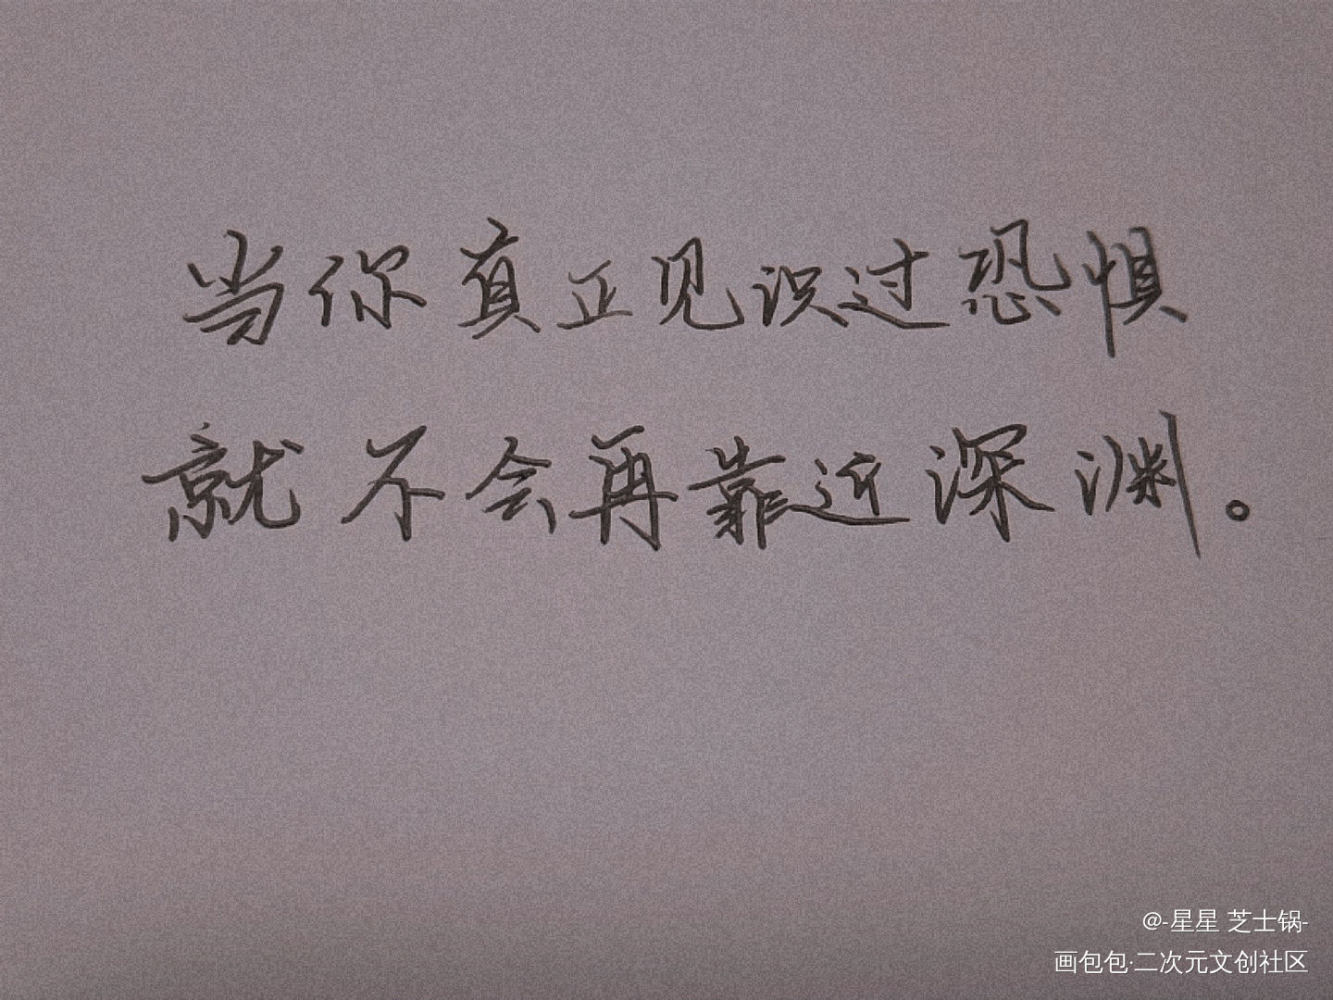 当你真正见识过恐惧
就不会再靠近深渊。
@-星星 芝士锅-
画包包·二次元文创社区